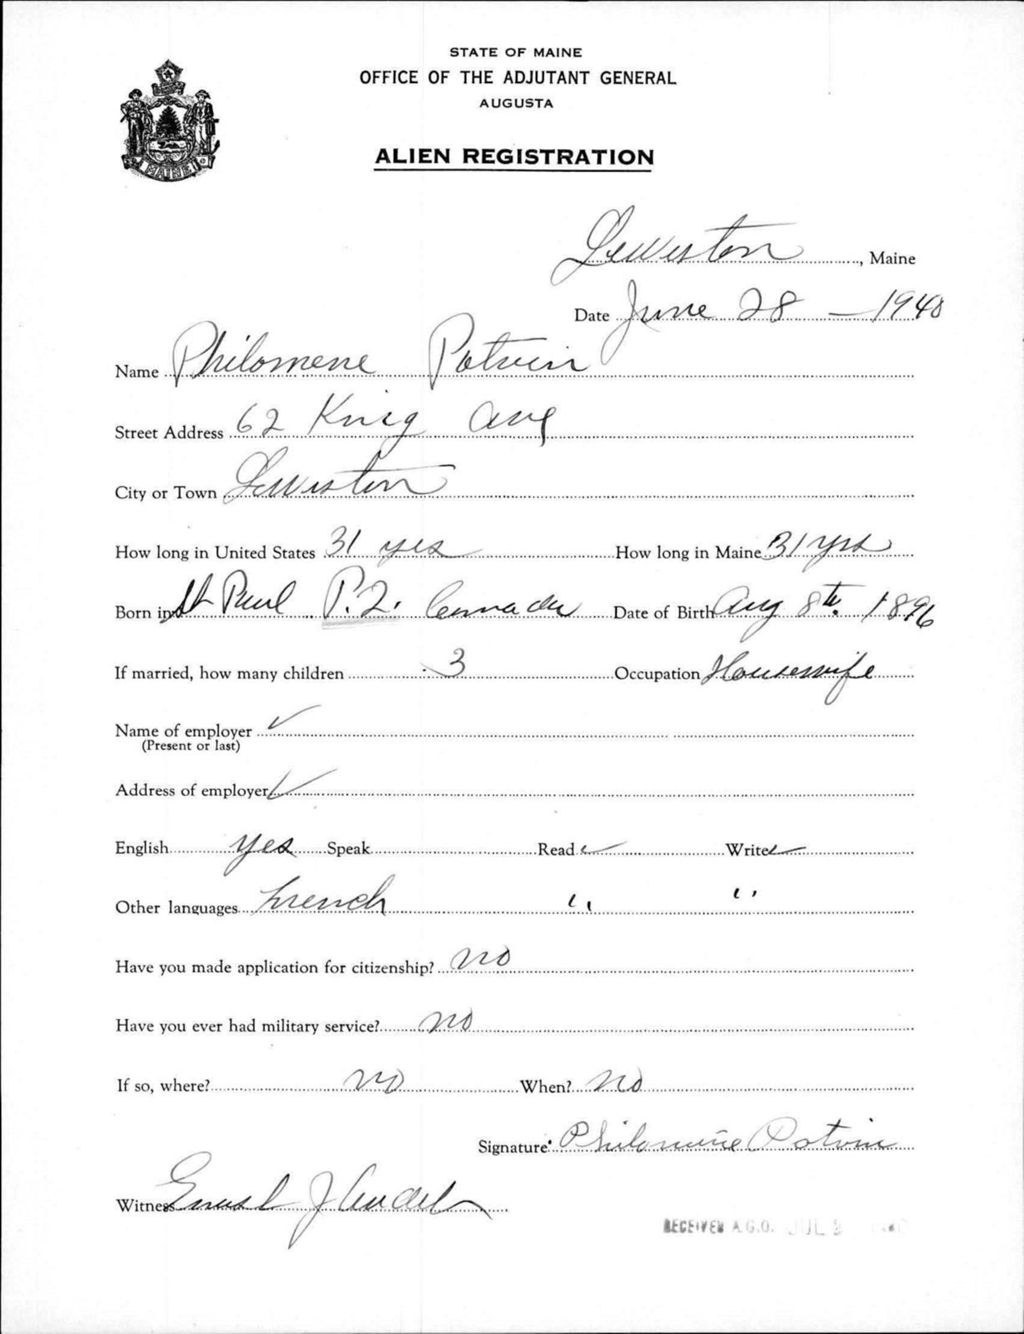 STATE OF MAINE
OFFICE OF THE ADJUTANT GENERAL
AUGUSTA
ALIEN REGISTRATION
Lewiston, Maine
Date June 28 - 1940
Name Philomene Potvin
Street Address 62 King Ave
City or Town Lewiston
How long in United States 31 yrs How long in Maine 31 yrs
Born in St Paul P.Q. Canada Date of Birth Aug 8th 1896
If married, how many children 3 Occupation Housewife
Name of employer
(Present or last)
Address of employer
English yes Speak Read Write
Other languages French " "
Have you made application for citizenship? no
Have you ever had military service? no
If so, where? no When? no
Signature Philomene Potvin
Witness J
RECEIVED A.G.O. JUL
MAINE